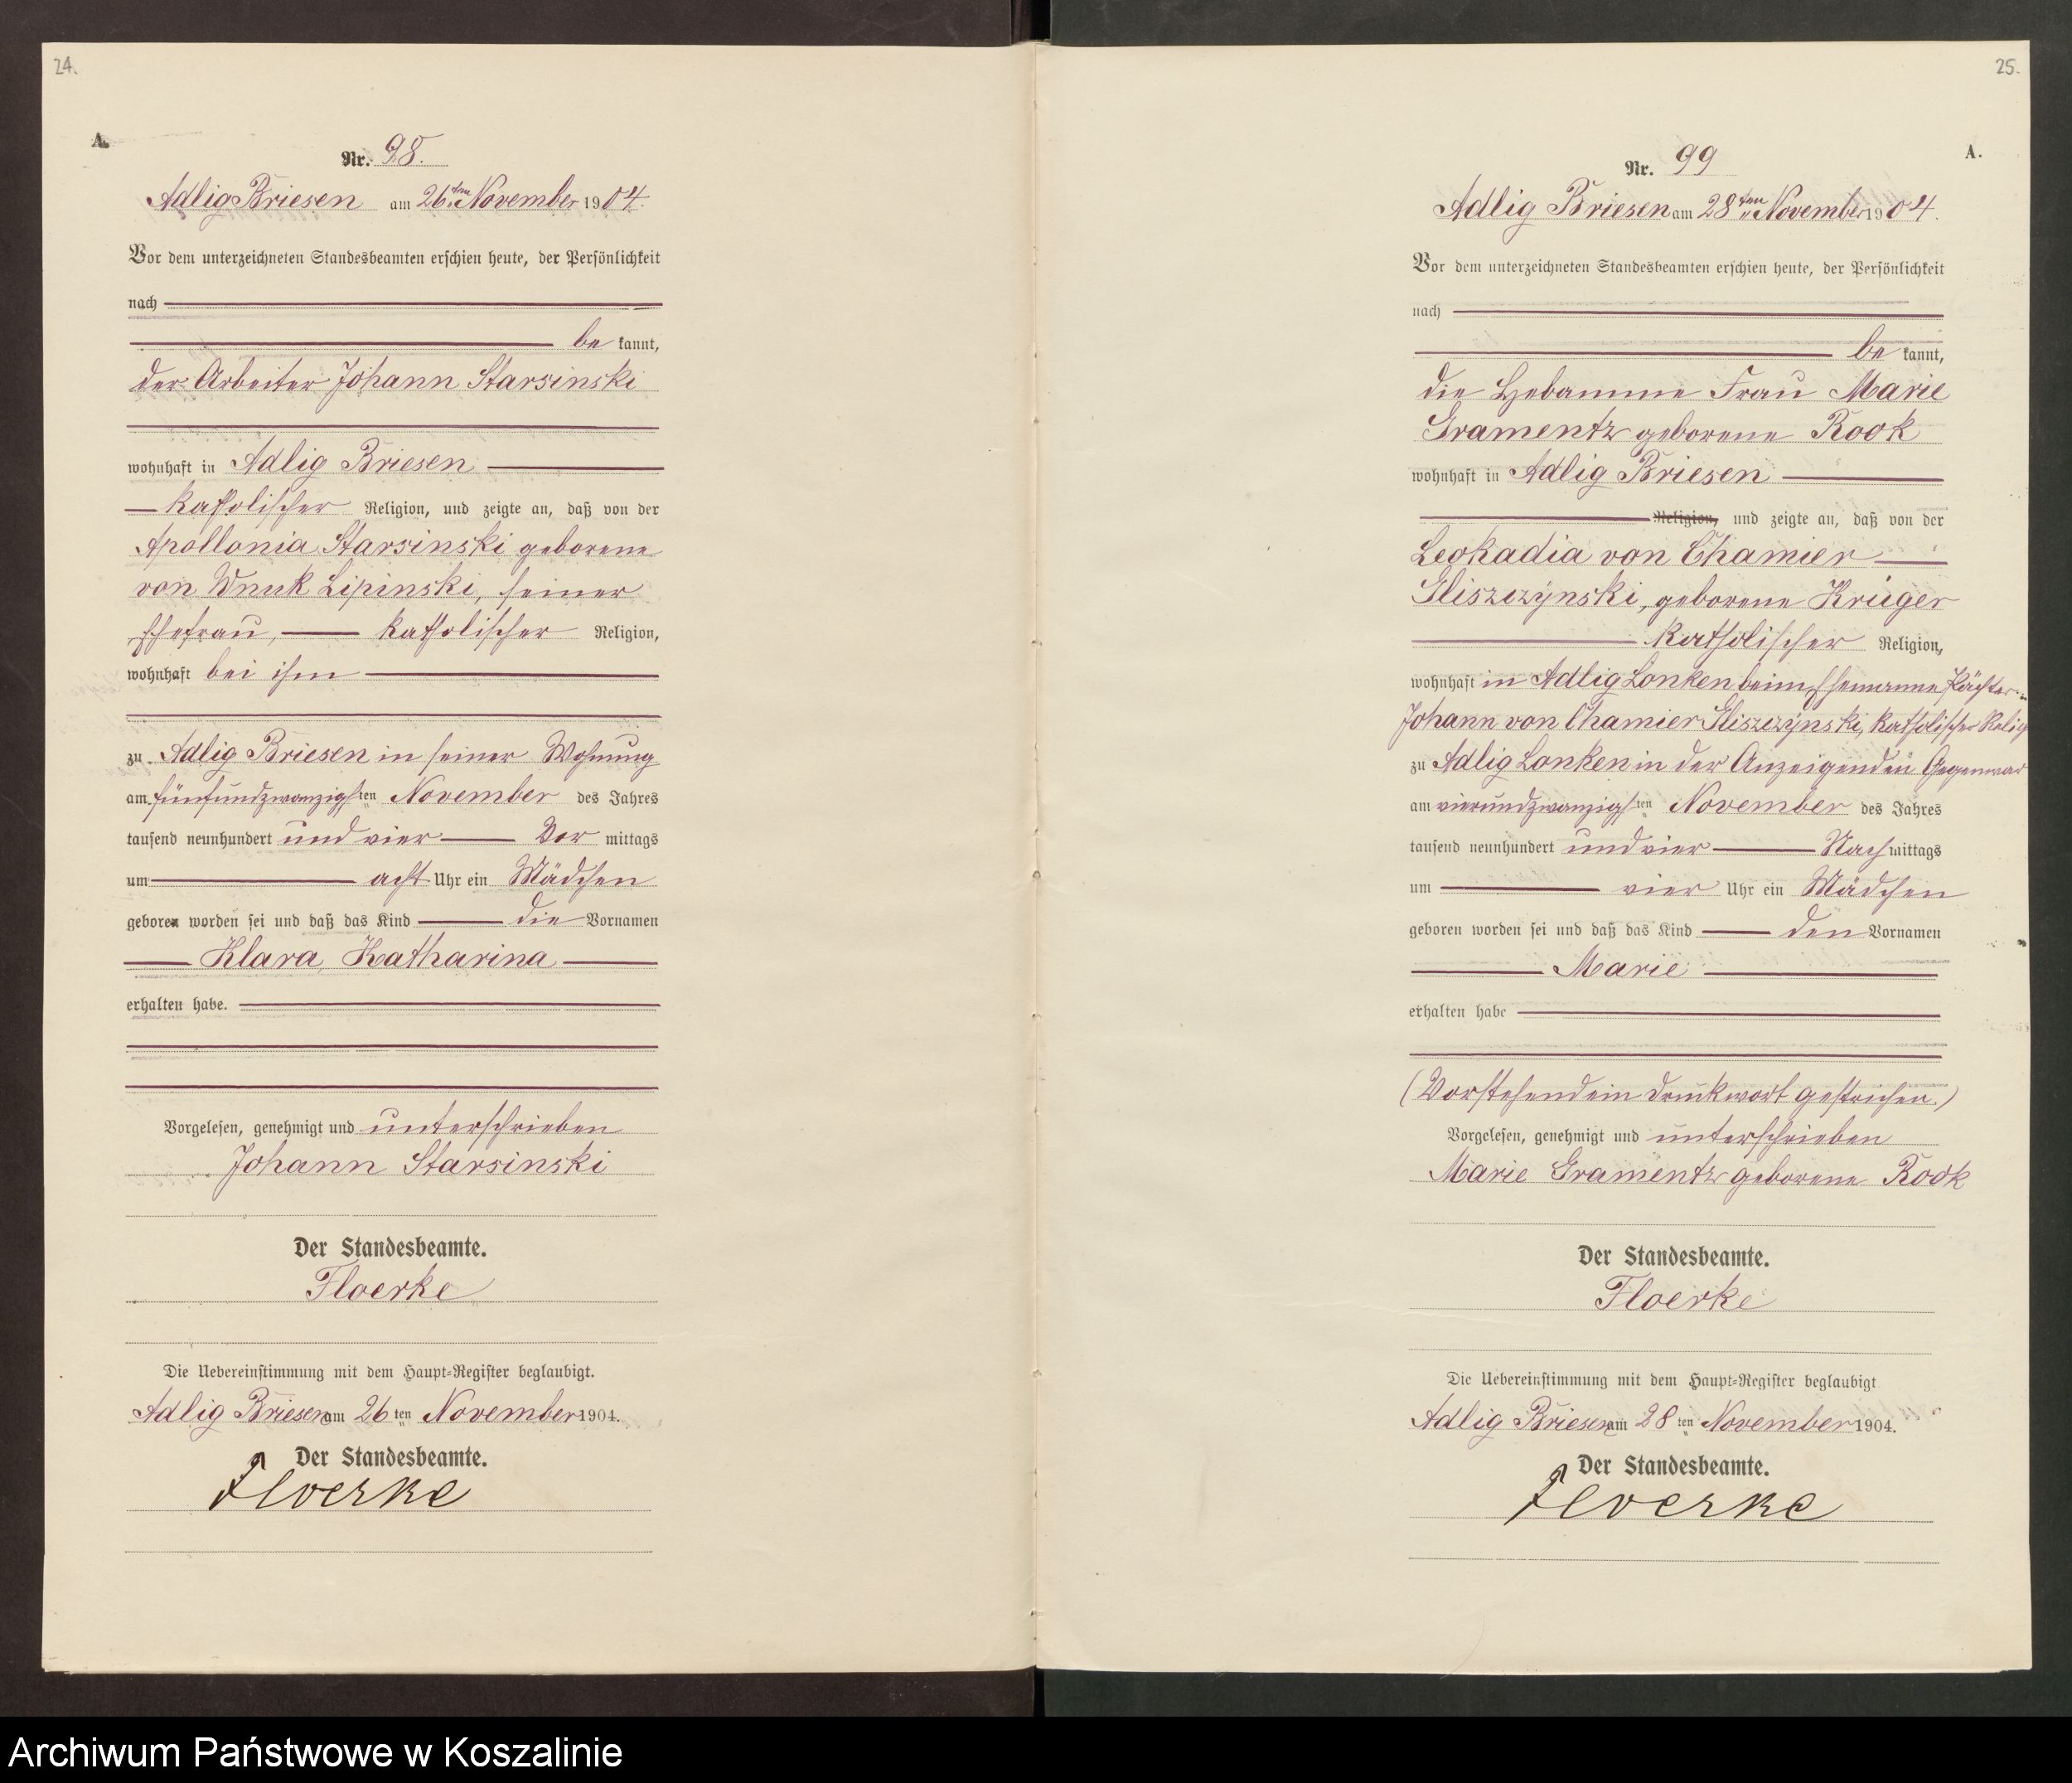 24.
A.
Nr. 98.
Adlig Briesen am 26ten November 1904.
Vor dem unterzeichneten Standesbeamten erschien heute, der Persönlichkeit
nach
be kannt,
der Arbeiter Johann Starsinski
wohnhaft in Adlig Briesen
katholischer Religion, und zeigte an, daß von der
Apollonia Starsinski geborene
von Wnuk Lipinski, seiner
Ehefrau, katholischer Religion,
wohnhaft bei ihm
zu Adlig Briesen in seiner Wohnung
am fünfundzwanzigsten November des Jahres
tausend neunhundert und vier Vor mittags
um acht Uhr ein Mädchen
geboren worden sei und daß das Kind die Vornamen
Klara Katharina
erhalten habe.
Vorgelesen, genehmigt und unterschrieben
Johann Starsinski
Der Standesbeamte.
Floerke
Die Uebereinstimmung mit dem Haupt-Register beglaubigt.
Adlig Briesen am 26ten November 1904.
Der Standesbeamte.
Floerke
25.
A.
Nr. 99
Adlig Briesen am 28ten November 1904.
Vor dem unterzeichneten Standesbeamten erschien heute, der Persönlichkeit
nach
be kannt,
die Hebamme Frau Marie
Gramentz geborene Rook
wohnhaft in Adlig Briesen
Religion, und zeigte an, daß von der
Leokadia von Chamier
Gliszczynski, geborene Krüger
katholischer Religion,
wohnhaft in Adlig Lonken beim Ehemanne Pächter
Johann von Chamier Gliszczynski, katholischer Relig
zu Adlig Lonken in der Anzeigenden Gegenwar
am vierundzwanzigsten November des Jahres
tausend neunhundert und vier Nach mittags
um vier Uhr ein Mädchen
geboren worden sei und daß das Kind den Vornamen
Marie
erhalten habe
(Vorstehend ein Druckwort gestrichen.)
Vorgelesen, genehmigt und unterschrieben
Marie Gramentz geborene Rook
Der Standesbeamte.
Floerke
Die Uebereinstimmung mit dem Haupt-Register beglaubigt
Adlig Briesen am 28ten November 1904.
Der Standesbeamte.
Floerke
Archiwum Państwowe w Koszalinie